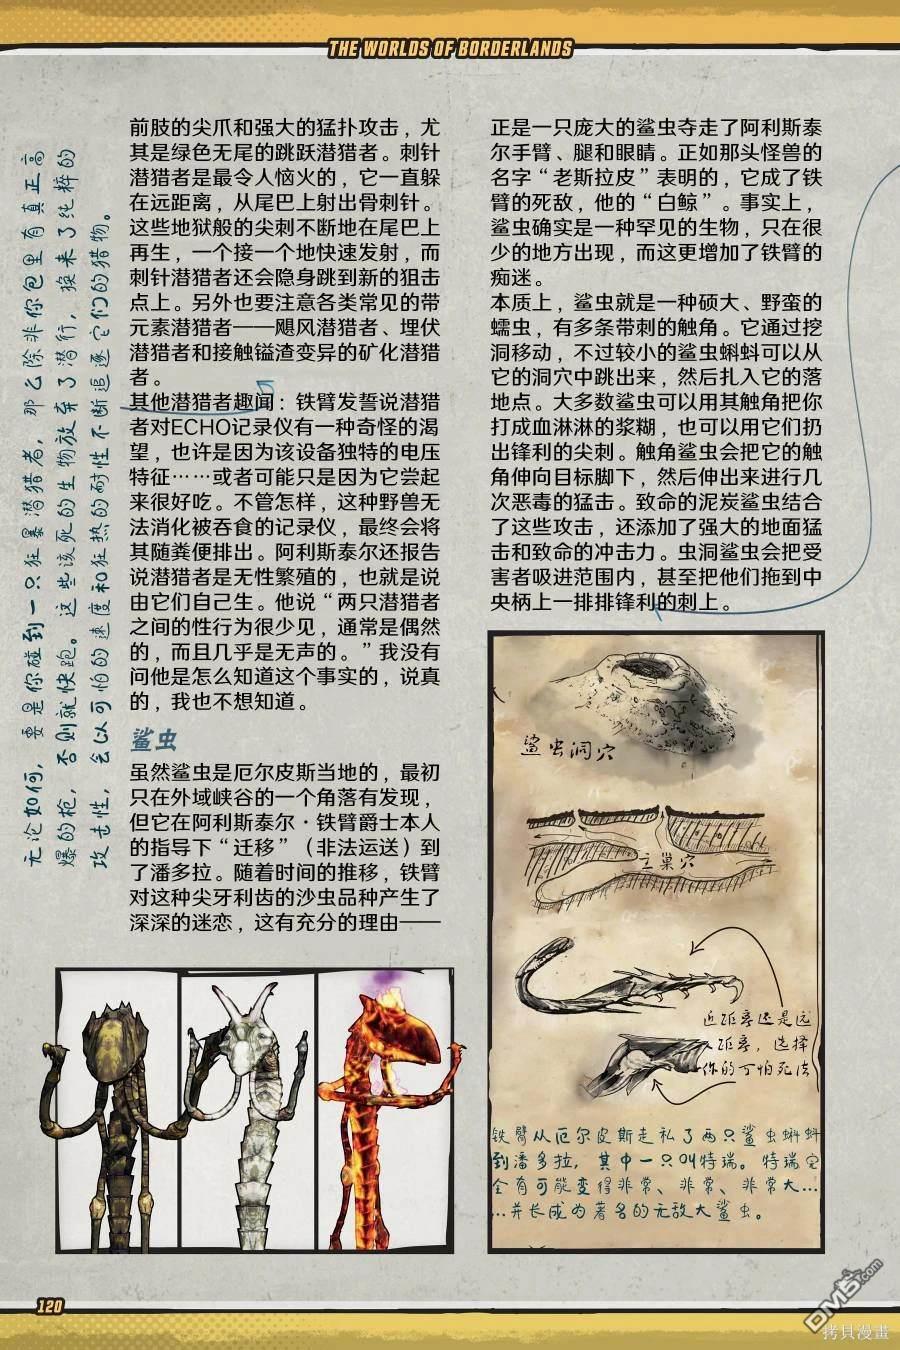 THE WORLDS OF BORDERLANDS
无论如何，要是你碰到一只狂暴潜猎者，那么除非你包里有真正高
爆的枪，否则就快跑。这些该死的生物放弃了潜行，换来了纯粹的
攻击性，会以可怕的速度和狂热的耐性不断追逐它们的猎物。
前肢的尖爪和强大的猛扑攻击，尤
其是绿色无尾的跳跃潜猎者。刺针
潜猎者是最令人恼火的，它一直躲
在远距离，从尾巴上射出骨刺针。
这些地狱般的尖刺不断地在尾巴上
再生，一个接一个地快速发射，而
刺针潜猎者还会隐身跳到新的狙击
点上。另外也要注意各类常见的带
元素潜猎者——飓风潜猎者、埋伏
潜猎者和接触镒渣变异的矿化潜猎
者。
其他潜猎者趣闻：铁臂发誓说潜猎
者对ECHO记录仪有一种奇怪的渴
望，也许是因为该设备独特的电压
特征……或者可能只是因为它尝起
来很好吃。不管怎样，这种野兽无
法消化被吞食的记录仪，最终会将
其随粪便排出。阿利斯泰尔还报告
说潜猎者是无性繁殖的，也就是说
由它们自己生。他说“两只潜猎者
之间的性行为很少见，通常是偶然
的，而且几乎是无声的。”我没有
问他是怎么知道这个事实的，说真
的，我也不想知道。
鲨虫
虽然鲨虫是厄尔皮斯当地的，最初
只在外域峡谷的一个角落有发现，
但它在阿利斯泰尔·铁臂爵士本人
的指导下“迁移”（非法运送）到
了潘多拉。随着时间的推移，铁臂
对这种尖牙利齿的沙虫品种产生了
深深的迷恋，这有充分的理由——
正是一只庞大的鲨虫夺走了阿利斯泰
尔手臂、腿和眼睛。正如那头怪兽的
名字“老斯拉皮”表明的，它成了铁
臂的死敌，他的“白鲸”。事实上，
鲨虫确实是一种罕见的生物，只在很
少的地方出现，而这更增加了铁臂的
痴迷。
本质上，鲨虫就是一种硕大、野蛮的
蠕虫，有多条带刺的触角。它通过挖
洞移动，不过较小的鲨虫蝌蚪可以从
它的洞穴中跳出来，然后扎入它的落
地点。大多数鲨虫可以用其触角把你
打成血淋淋的浆糊，也可以用它们扔
出锋利的尖刺。触角鲨虫会把它的触
角伸向目标脚下，然后伸出来进行几
次恶毒的猛击。致命的泥炭鲨虫结合
了这些攻击，还添加了强大的地面猛
击和致命的冲击力。虫洞鲨虫会把受
害者吸进范围内，甚至把他们拖到中
央柄上一排排锋利的刺上。
鲨虫洞穴
主巢穴
近距离还是远
距离，选择
你的可怕死法
铁臂从厄尔皮斯走私了两只鲨虫蝌蚪
到潘多拉，其中一只叫特瑞。特瑞完
全有可能变得非常、非常、非常大…
…并长成为著名的无敌大鲨虫。
120
DM5.com
拷貝漫畫